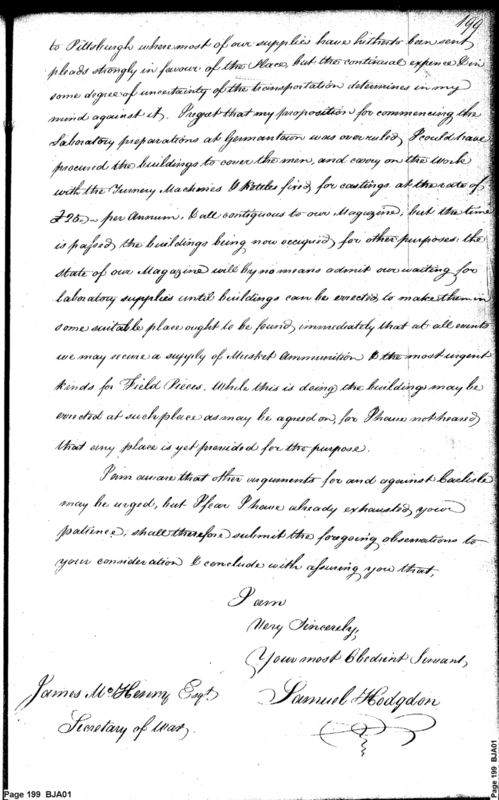 199
to Pittsburgh where most of our supplies have hitherto been sent
pleads strongly in favour of the Place, but the continual expence & in
some degree of uncertainty of the transportation determines in my
mind against it. I regret that my proposition for commencing the
Laboratory preparations at Germantown was overruled, I could have
procured the buildings to cover the men, and carry on the Work
with the Turnery Machines & Kettles fixed for castings at the rate of
£25,~ per Annum, & all contiguous to our Magazine, but the time
is passed, the buildings being now occupied for other purposes: the
state of our Magazine will by no means admit our waiting for
laboratory supplies until buildings can be erected to make them in
some suitable place ought to be found immediately that at all events
we may secure a supply of Musket Ammunition & the most urgent
kinds for Field Pieces. While this is doing the buildings may be
erected at such place as may be agreed on, for I have not heard
that any place is yet provided for the purpose.
I am aware that other arguments for and against Carlisle
may be urged, but I fear I have already exhausted your
patience, shall therefore submit the foregoing observations to
your consideration & conclude with assuring you that,
I am
Very Sincerely,
Your most Obedient Servant,
James McHenry Esqr.
Samuel Hodgdon
Secretary of War,
Page 199 BJA01
Page 199 BJA01